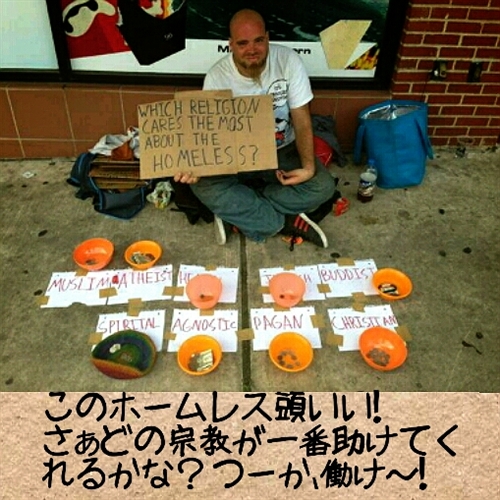 WHICH RELIGION
CARES THE MOST
ABOUT THE
HOMELESS?
MUSLIM ATHEIST BUDDIST
SPIRITAL AGNOSTIC PAGAN CHRISTIAN
このホームレス頭いい!
さぁどの宗教が一番助けてく
れるかな?つーか、働け〜!